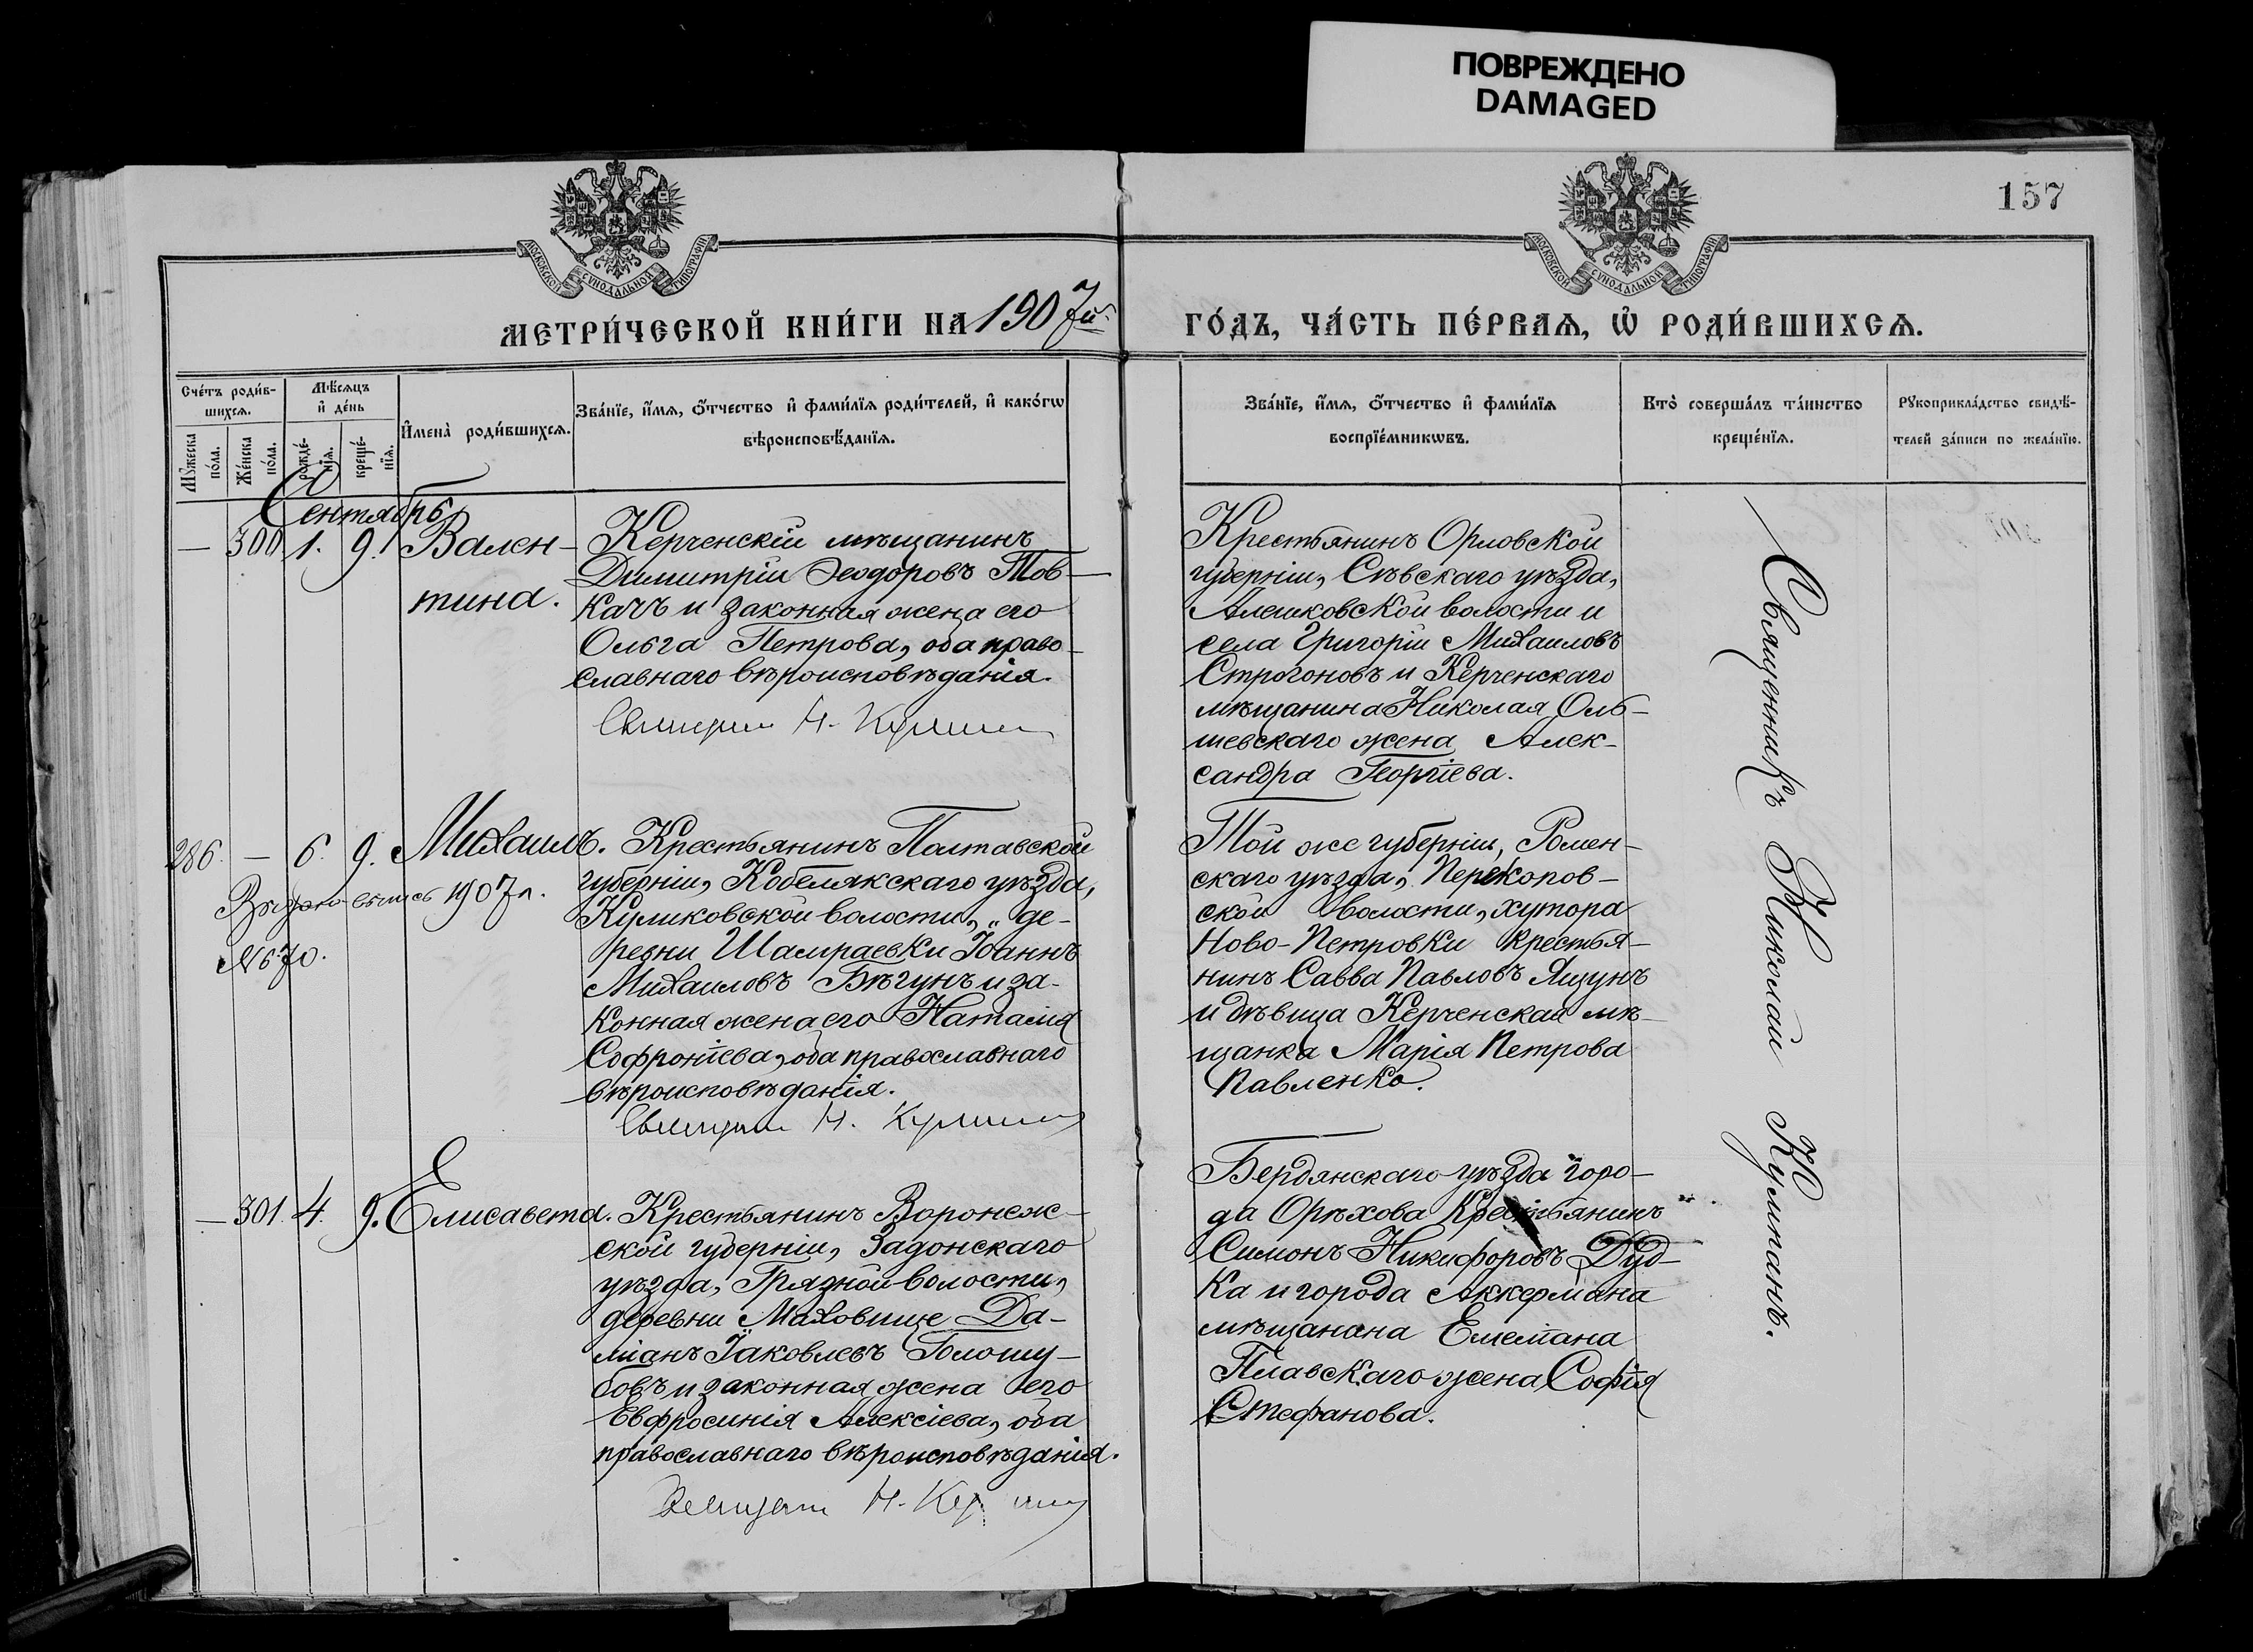 ПОВРЕЖДЕНО
DAMAGED
157
МОСКОВСКОЙ СѴНОДАЛЬНОЙ ТИПОГРАФІИ
МОСКОВСКОЙ СѴНОДАЛЬНОЙ ТИПОГРАФІИ
МЕТРИ́ЧЕСКОЙ КНИ́ГИ НА 1907й
ГО́ДЪ, ЧА́СТЬ ПЕ́РВАѦ, Ѡ҆ РОДИ́ВШИХСѦ.
Сче́тъ роди́в-
шихсѧ.
Мꙋ́жеска по́ла.
Же́нска по́ла.
Мѣ́сѧцъ и҆ де́нь
рожде́-нїѧ.
креще́-нїѧ.
И҆мена̀ роди́вшихсѧ.
Зва́нїе, и҆́мѧ, ѻ҆́тчество и҆ фами́лїѧ роди́телей, и҆ како́гѡ
вѣроисповѣ́данїѧ.
Зва́нїе, и҆́мѧ, ѻ҆́тчество и҆ фами́лїѧ
воспрїе́мникѡвъ.
Кто̀ соверша́лъ та́инство
креще́нїѧ.
Рꙋкоприкла́дство свидѣ́-
телей за́писи по жела́нїю.
Сентябрь
— 300 1. 9. Вален-
тина.
Керченскій мѣщанинъ
Димитрій Ѳеодоровъ Тов-
качъ и законная жена его
Ольга Петрова, оба право-
славнаго вѣроисповѣданія.
Н.
Крестьянинъ Орловской
губерніи, Сѣвскаго уѣзда,
Алешковской волости и
села Григорій Михаиловъ
Строгоновъ и Керченскаго
мѣщанина Николая Оль-
шевскаго жена Алек-
сандра Георгіева.
286. — 6. 9. Михаилъ.
1907 г.
№ 670.
Крестьянинъ Полтавской
губерніи, Кобелякскаго уѣзда,
Куликовской волости, де-
ревни Шамраевки Іоаннъ
Михаиловъ Бѣгунъ и за-
конная жена его Наталія
Софроніева, оба православнаго
вѣроисповѣданія.
Н.
Той же губерніи, Ромен-
скаго уѣзда, Перекопов-
ской волости, хутора
Ново-Петровки крестья-
нинъ Савва Павловъ Ящунъ
и дѣвица Керченская мѣ-
щанка Марія Петрова
Павленко.
— 301. 4. 9. Елисавета.
Крестьянинъ Воронеж-
ской губерніи, Задонскаго
уѣзда, Грязной волости,
деревни Маховище Да-
міанъ Іаковлевъ Голошу-
бовъ и законная жена его
Евфросинія Алексіева, оба
православнаго вѣроисповѣданія.
Н.
Бердянскаго уѣзда горо-
да Орѣхова Крестьянинъ
Симонъ Никифоровъ Дуд-
ка и города Аккермана
мѣщанина Емеліана
Плавскаго жена Софія
Стефанова.
Священникъ Николай Кумпанъ.